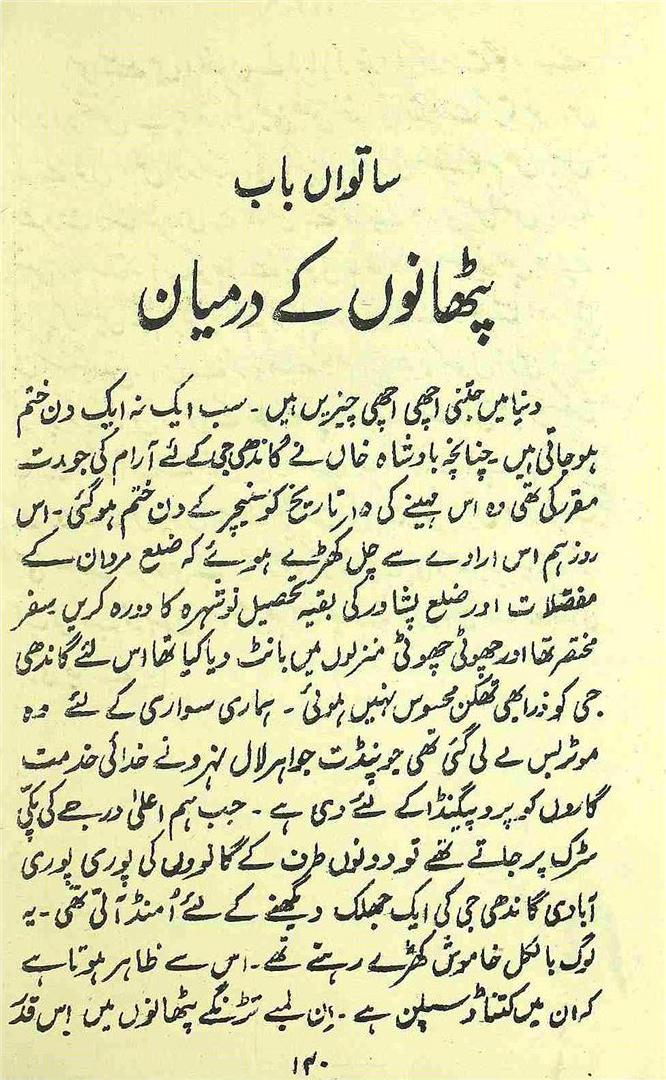 ساتواں باب
پٹھانوں کے درمیان
دنیا میں جتنی اچھی اچھی چیزیں ہیں۔ سب ایک نہ ایک دن ختم
ہو جاتی ہیں۔ چنانچہ بادشاہ خاں نے گاندھی جی کے لئے آرام کی جو مدت
مقرر کی تھی وہ اس مہینے کی ۱۵ر تاریخ کو سنیچر کے دن ختم ہو گئی۔ اس
روز ہم اس ارادے سے چل کھڑے ہوئے کہ ضلع مردان کے
مفصلات اور ضلع پشاور کی بقیہ تحصیل نوشہرہ کا دورہ کریں۔ سفر
مختصر تھا اور چھوٹی چھوٹی منزلوں میں بانٹ دیا گیا تھا اس لئے گاندھی
جی کو ذرا بھی تھکن محسوس نہیں ہوئی۔ ہماری سواری کے لئے وہ
موٹر بس لے لی گئی تھی جو پنڈت جواہر لال نہرو نے خدائی خدمت
گاروں کو پروپیگنڈا کے لئے دی ہے۔ جب ہم اعلیٰ درجے کی پکّی
سڑک پر چلتے تھے تو دونوں طرف کے گانووں کی پوری پوری
آبادی گاندھی جی کی ایک جھلک دیکھنے کے لئے اُمنڈ آتی تھی۔ یہ
لوگ بالکل خاموش کھڑے رہتے تھے۔ اس سے ظاہر ہوتا ہے
کہ ان میں کتنا ڈسپلن ہے۔ اِن لمبے تڑنگے پٹھانوں میں اِس قدر
۱۴۰